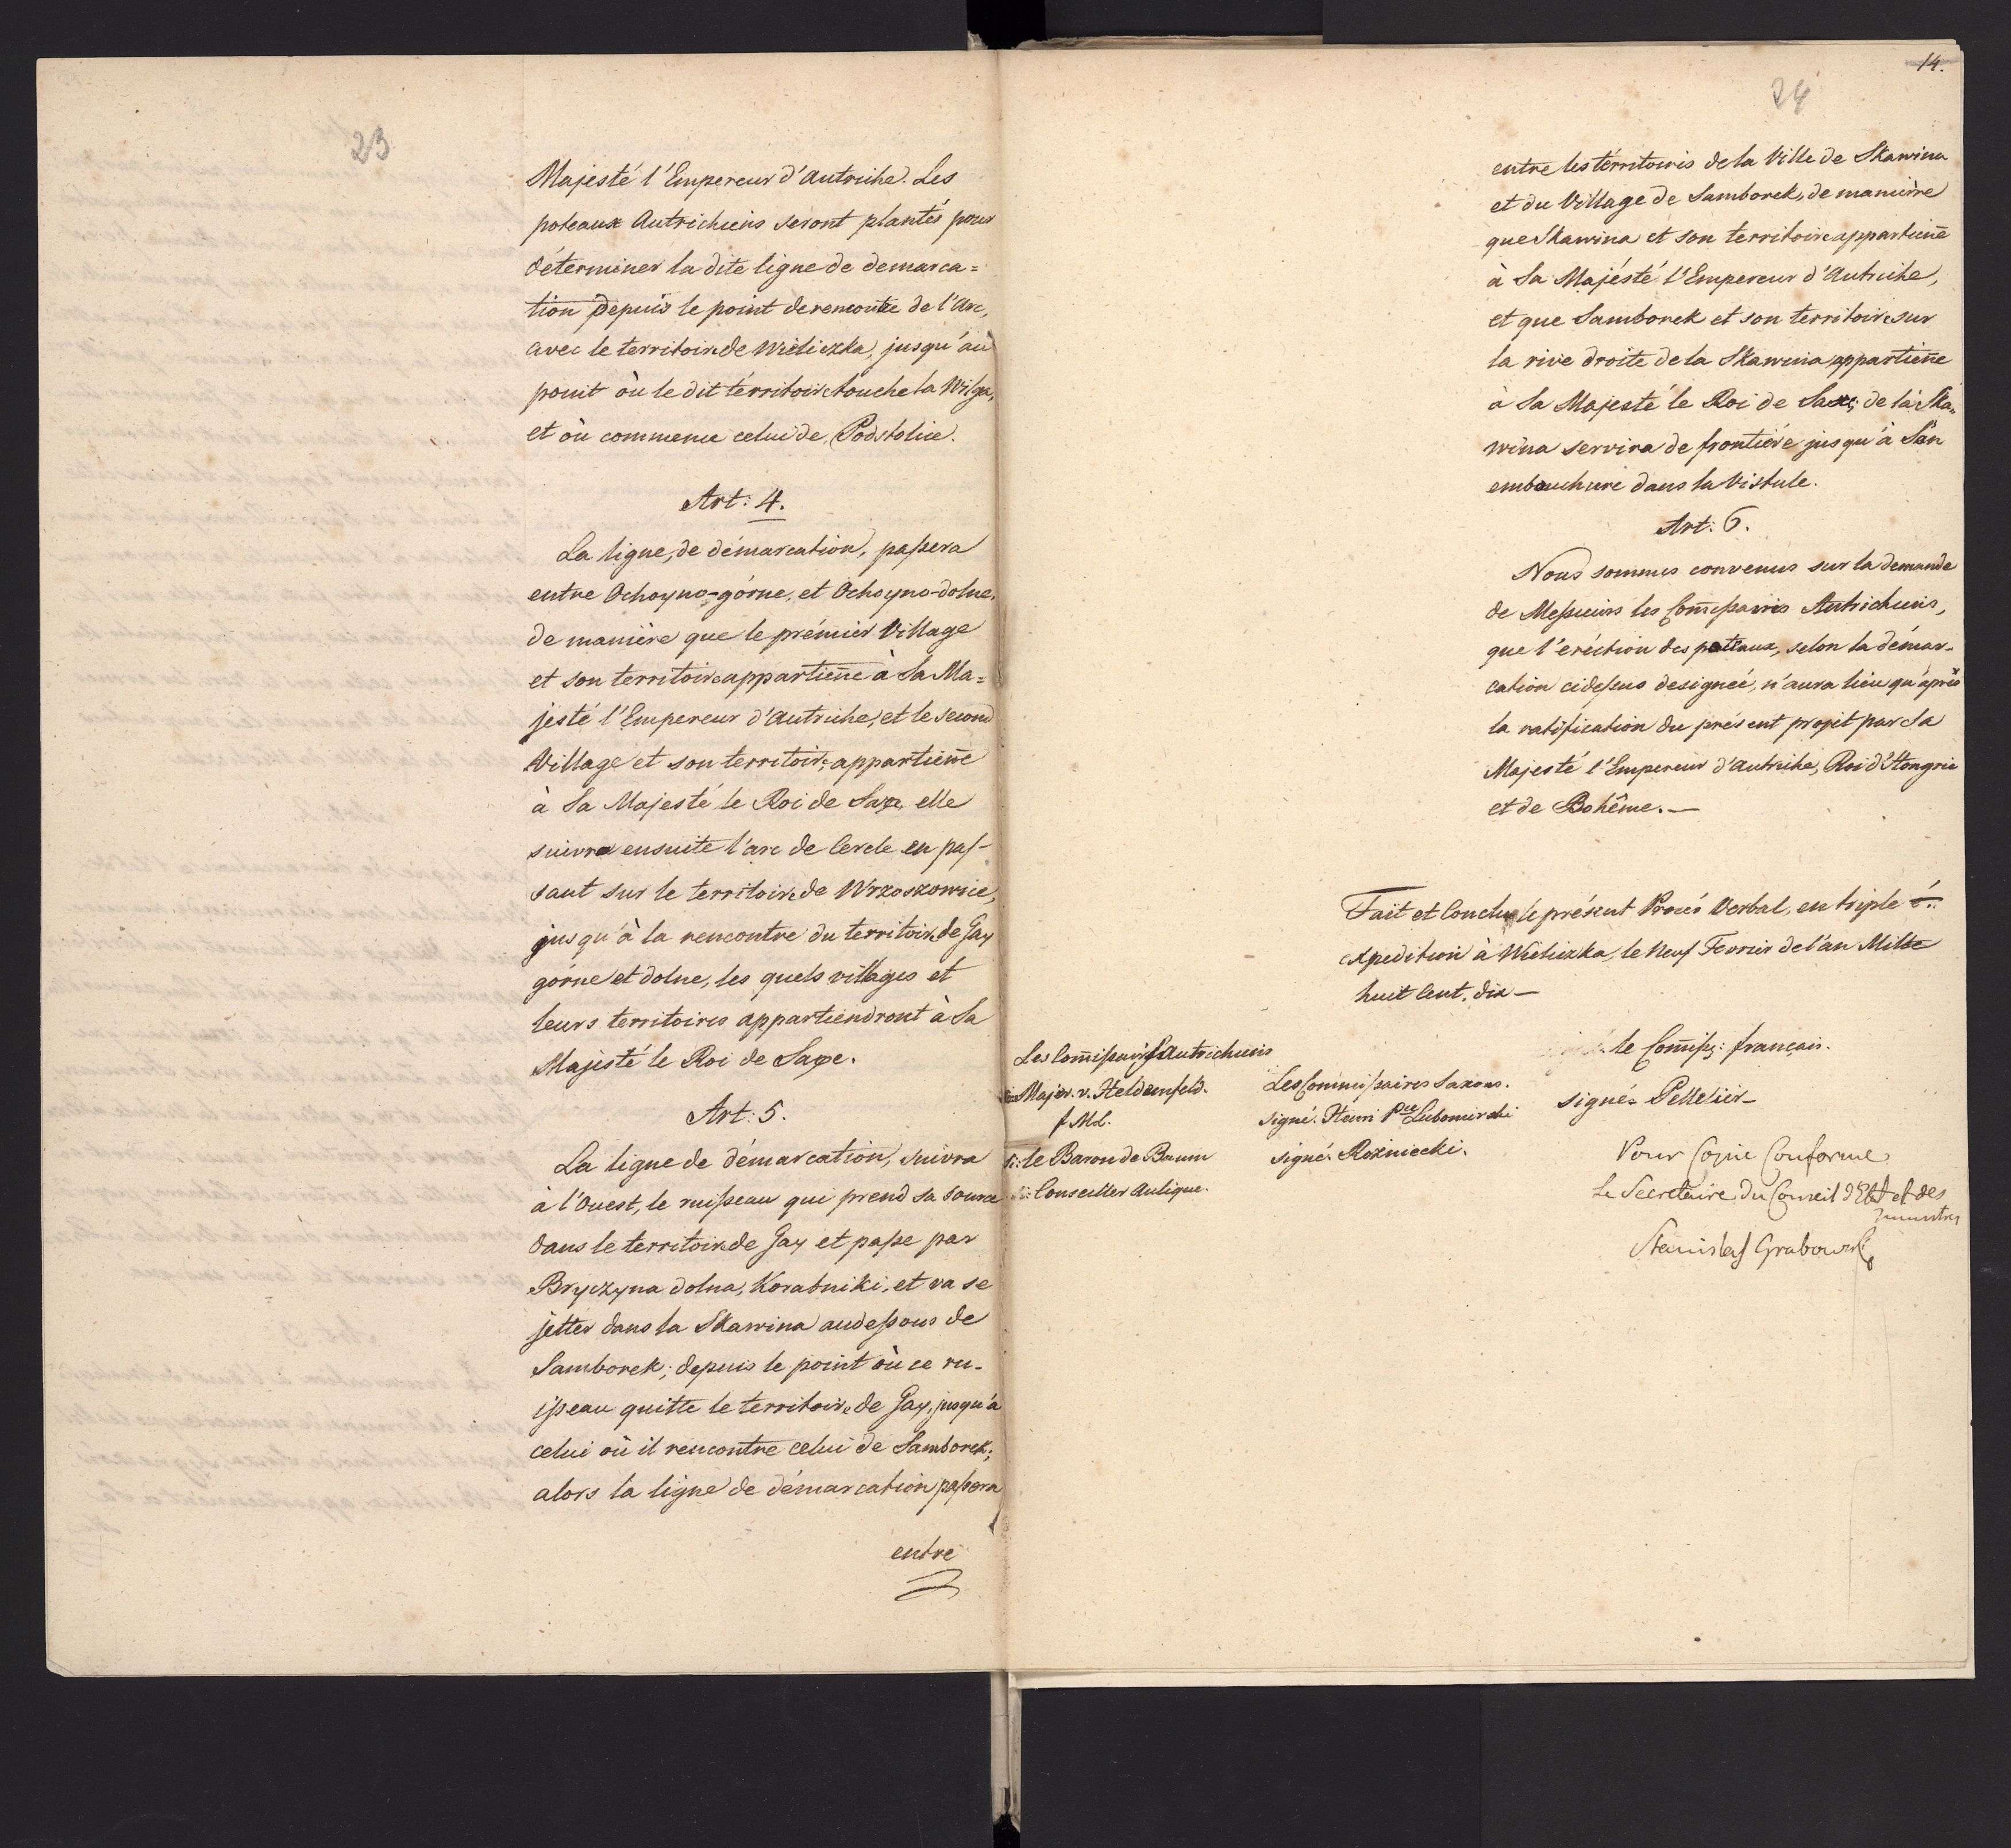 23
Majesté l'Empereur d'Autriche. Les
poteaux Autrichiens seront plantés pour
déterminer la dite ligne de demarca=
tion depuis le point de rencontre de l'Arc,
avec le territoire de Wieliczka, jusqu'au
point où le dit térritoire touche la Wilga,
et où commence celui de Podstolice.
Art: 4.
La ligne, de démarcation, paſsera
entre Ochoyno-górne, et Ochoyno-dolne,
de manière que le prémier Village
et son territoire appartieñe à Sa Ma=
jesté l'Empereur d'Autriche, et le second
Village et son territoire appartieñe
à Sa Majesté le Roi de Saxe, elle
suivra ensuite l'arc de Cercle en paſ-
sant sur le territoire de Wrzoszowice,
jusqu'à la rencontre du territoire de Gay
górne et dolne, les quels villages et
leurs territoires appartiendront à Sa
Majesté le Roi de Saxe.
Art: 5.
La ligne de démarcation, suivra
à l'Ouest, le ruiſseau qui prend sa source
dans le territoire de Gay et paſse par
Bryczyna dolna, Korabniki, et va se
jetter dans la Skawina audeſsous de
Samborek; depuis le point où ce ru-
iſseau quitte le territoire de Gay, jusqu'à
celui où il rencontre celui de Samborek;
alors la ligne de démarcation paſsera
entre
14.
24
entre les térritoires de la Ville de Skawina
et du Village de Samborek, de manière
que Skawina et son territoire appartieñe
à Sa Majésté l'Empereur d'Autriche,
et que Samborek et son territoire sur
la rive droite de la Skawina appartieñe
à Sa Majesté le Roi de Saxe; de là Ska-
wina servira de frontière jusqu'à Son
embouchure dans la Vistule.
Art: 6.
Nous sommes convenus sur la demande
de Meſsieurs les Com̃iſsaires Autrichiens,
que l'eréction des poteaux, selon la démar-
cation cideſsus designeé, n'aura lieu qu'après
la ratification du présent projet par Sa
Majesté l'Empereur d'Autriche, Roi d'Hongrie
et de Bohême.—
Fait et Conclu le présent Procès Verbal, en triple é..
expedition à Wieliczka, le Neuf Fevrier de l'an Mille
huit Cent, dix—
Les Com̃iſsaires Autrichiens
Major. v. Heldenfeld.
f M.L.
le Baron de Baum
Conseiller Aulique.
Les Commiſsaires Saxons.
signé. Henri Pce Lubomirski
signé. Rozniecki.
le Com̃iſs: français.
signé= Pelletier—
Pour Copie Conforme
Le Secretaire du Conseil d'Etat et des
ministres
Stanislas Grabowski